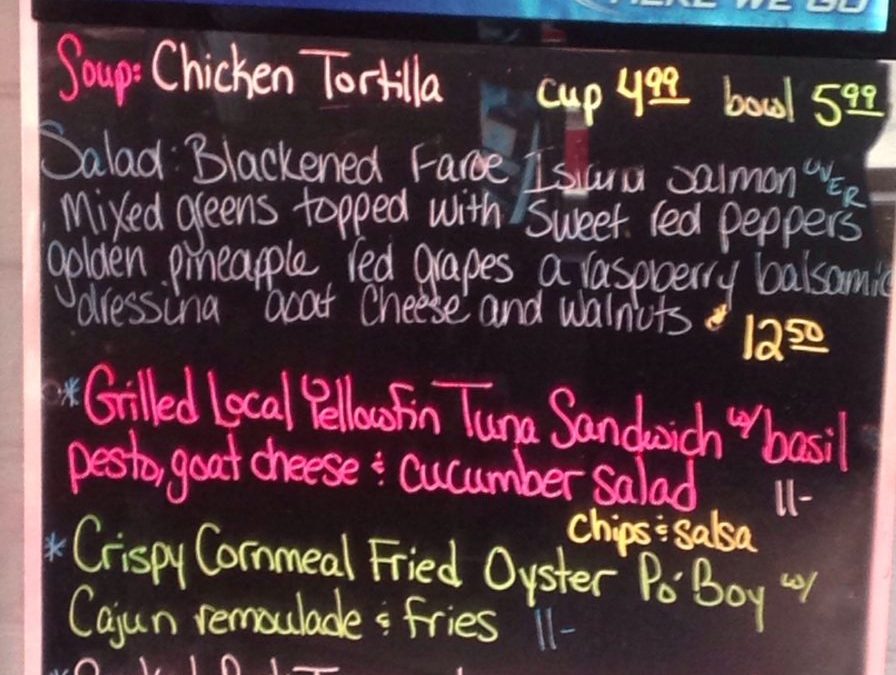 HERE WE GO
Soup: Chicken Tortilla cup 4.99 bowl 5.99
Salad: Blackened Faroe Island salmon OVER
Mixed greens topped with sweet red peppers
golden pineapple red grapes a raspberry balsamic
dressing goat cheese and walnuts 12.50
*Grilled Local Yellowfin Tuna Sandwich w/ basil
pesto, goat cheese & cucumber salad 11-
chips & salsa
*Crispy Cornmeal Fried Oyster Po'Boy w/
Cajun remoulade & fries 11-